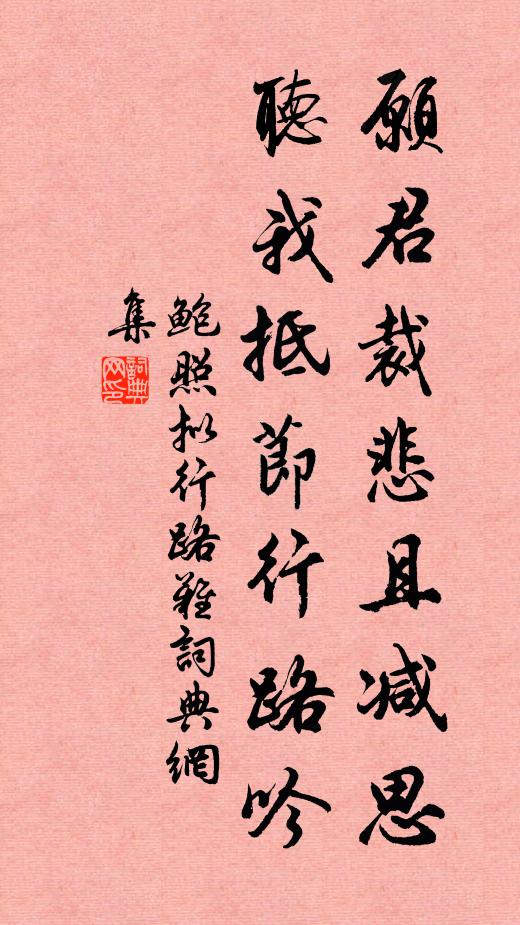 願君裁悲且減思
聽我抵節行路吟
鮑照拟行路難詞典網
集
詞典
网印